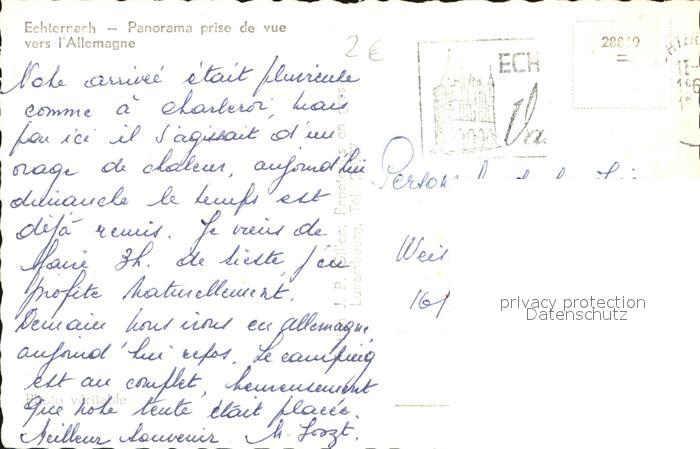 Echternach — Panorama prise de vue
vers l'Allemagne
2 €
28819
ECH
Notre arrivée était pluvieuse
comme à Charleroi, mais
par ici il s'agissait d'un
orage de chaleur, aujourd'hui
dimanche le temps est
déjà remis. Je viens de
faire 3h. de sieste, j'en
profite naturellement.
Demain nous irons en Allemagne,
aujourd'hui repos. Le camping
est au complet, heureusement
que notre tente était placée.
Meilleur souvenir. M.
Photo véritable
Luxembourg, Tél.
Weil
161
privacy protection
Datenschutz